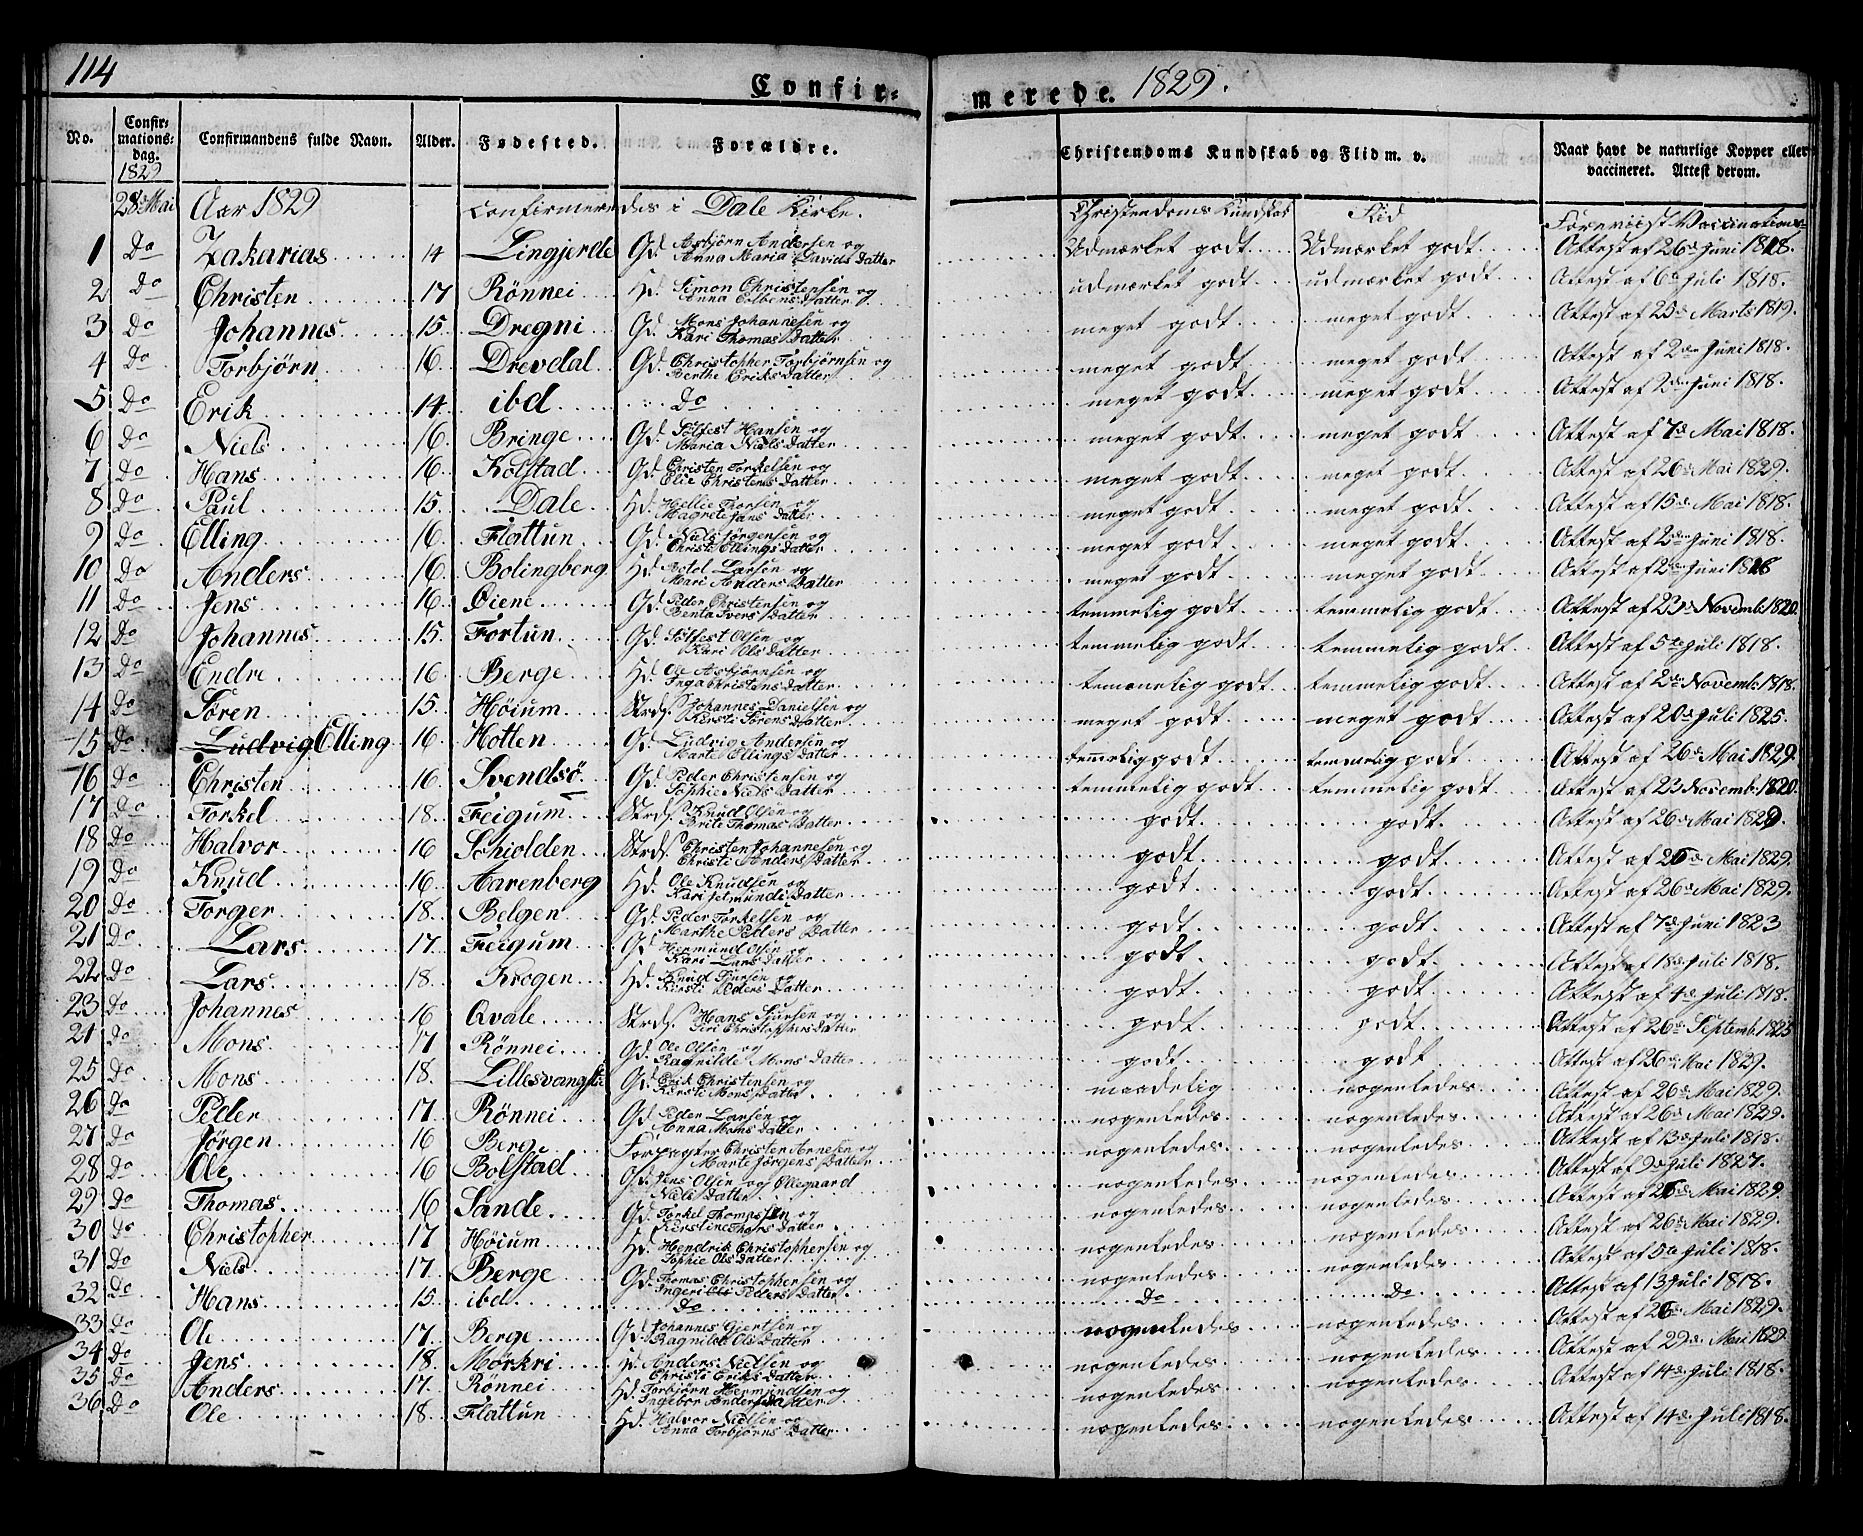 114
Confir= merede. 1829.
No. Confir= mations= dag. 1829 Confirmandens fulde Navn. Alder. Fødested. Forældre. Christendoms Kundskab og Flid m. v. Naar havt de naturlige Kopper eller vaccineret. Attest derom.
28de Mai Aar 1829 Confirmeredes i Dale Kirke. Christendoms Kundskab Flid Foreviist Vaccinations=
1 Do Zakarias 14 Lingjerde Gd. Asbjørn Andersen og Anna Maria Davids Datter Udmærket godt Udmærket godt Attest af 26de Juni 1818.
2 Do Christen 17 Rönnei Hd. Simon Christensen og Anna Colbens Datter udmærket godt udmærket godt Attest af 6te Juli 1818.
3 Do Johannes 15. Dregni Gd. Mons Johannesen og Kari Thomas Datter meget godt meget godt Attest af 25de Marts 1819.
4 Do Torbjörn 16. Drevdal Gd. Christopher Torbjörnsen og Berthe Eriks Datter meget godt meget godt Attest af 2den Juni 1818.
5 Do Erik 14. ibd Do meget godt meget godt Attest af 2den Juni 1818.
6 Do Niels 16. Bringe Gd. Sölfest Hansen og Maria Niels Datter meget godt meget godt Attest af 7de Mai 1818.
7 Do Hans 16 Kolstad Gd. Christen Torkelsen og Elie Christens Datter meget godt meget godt Attest af 26de Mai 1829.
8 Do Paul 15. Dale Hd. Hellie Thorsen og Magrete Jens Datter meget godt meget godt Attest af 15de Mai 1818.
9 Do Elling 16 Flattun Gd. Niels Jörgensen og Christi Ellings Datter meget godt meget godt Attest af 2den Juni 1818.
10 Do Anders 16. Bolingberg Hd. Botol Larsen og Mari Anders Datter meget godt meget godt Attest af 2den Juni 1818
11 Do Jens 16 Øiene Gd. Peder Christensen og Benta Ivers Datter temmelig godt temmelig godt Attest af 23de Novemb. 1820.
12 Do Johannes 15. Fortun Gd. Sölfest Olsen og Kari Ols Datter temmelig godt temmelig godt Attest af 5te Juli 1818.
13 Do Endre 16 Berge Hd. Ole Asbjørnsen og Inga Christens Datter temmelig godt temmelig godt Attest af 2den Novemb. 1818.
14 Do Søren 15. Høium Strds. Johannes Danielsen og Kirsti Sörens Datter meget godt meget godt Attest af 20de Juli 1825.
15 Do Ludvig Elling 16 Hotten Gd. Ludvig Andersen og Marte Ellings Datter temelig godt temmelig godt Attest af 26de Mai 1829.
16 Do Christen 16 Svendsö Gd. Peder Christensen og Sophie Niels Datter temmelig godt temmelig godt Attest af 23 Novemb. 1820.
17 Do Torkel 18. Feigum Strds. Knud Olsen og Brite Thomas Datter godt godt Attest af 26de Mai 1829.
18 Do Halvor 16 Schiolden Strds. Christen Johannesen og Christi Anders Datter godt godt Attest af 26de Mai 1829.
19 Do Knud 16 Aarenberg Hd. Ole Knudsen og Kari Jetmunds Datter godt godt Attest af 26de Mai 1829.
20 Do Torger 18. Bolgen Gd. Peder Torkelsen og Marthe Peters Datter godt godt Attest af 7de Juni 1823
21 Do Lars 17. Feigum Gd Hermund Olsen og Kari Lars Datter godt godt Attest af 18de Juli 1818.
22 Do Lars 18. Krogen Hd. Knud Sjursen og Kirsti Peders Datter godt godt Attest af 4de Juli 1818.
23 Do Johannes 16 Qvale Strds. Hans Sjursen og Siri Christophers Datter godt godt Attest af 26de Septemb. 1825
24 Do Mons 17 Rönnei Gd. Ole Olsen og Ragnilde Mons Datter godt godt Attest af 26de Mai 1829.
25 Do Mons 18. Lillesvangstu Gd. Erik Christensen og Kirsti Mons Datter maadelig nogenledes Attest af 26de Mai 1829.
26 Do Peder 17. Rönnei Gd. Peder Larsen og Anna Mons Datter nogenledes nogenledes Attest af 26de Mai 1829.
27 Do Jörgen 16 Berge Forpagter Christen Arnesen og Marte Jörgens Datter nogenledes nogenledes Attest af 13de Juli 1818.
28 Do Ole 16 Bolstad Gd. Jens Olsen og Ollegaard Niels Datter nogenledes nogenledes Attest af 9de Juli 1827.
29 Do Thomas 16 Sande Gd. Torkel Thomassen og Kirstine Thors Datter nogenledes nogenledes Attest af 26de Mai 1829.
30 Do Christopher 17 Høium Hd. Hendrik Christophersen og Sophie Ols Datter nogenledes nogenledes Attest af 26de Mai 1829.
31 Do Niels 17. Berge Gd. Thomas Christophersen og Ingeri Peders Datter nogenledes nogenledes Attest af 5te Juli 1818.
32 Do Hans 15. ibd Do Do Do Attest af 13 Juli 1818.
33 Do Ole 17. Berge Gd. Johannes Gjertsen og Ragnilde Ols Datter nogenledes nogenledes Attest af 26de Mai 1829.
34 Do Jens 18. Mørkri Hd. Anders Nielsen og Christi Eriks Datter nogenledes nogenledes Attest af 29de Mai 1829.
35 Do Anders 17. Rönnei Hd. Torbjörn Hermundsen og Ingebor Anders Datter nogenledes nogenledes Attest af 14de Juli 1818.
36 Do Ole 18. Flattun Hd. Halvor Nielsen og Anna Torbjörns Datter nogenledes nogenledes Attest af 14de Juli 1818.